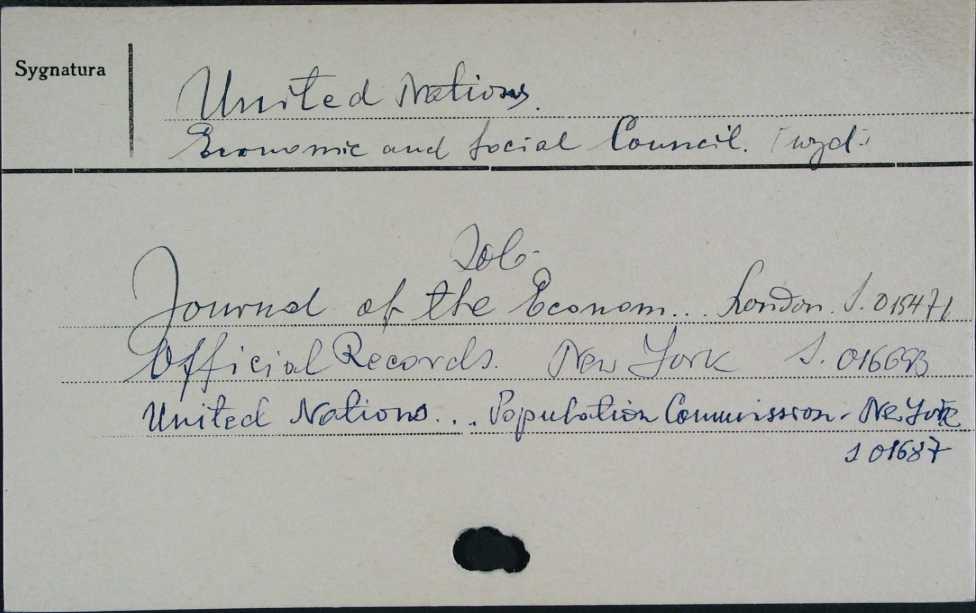 Sygnatura
United Nations.
Economic and Social Council. (wyd.)
Zob.
Journal of the Econom... London. S. 015471
Official Records. New York S. 016693
United Nations... Population Commission. New York
S 01687